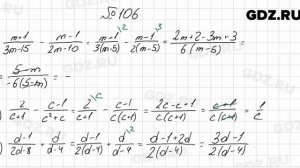 GDZ.RU
№ 106
(m+1)/(3m-15) - (m-1)/(2m-10) = (m+1)/(3(m-5)) \2 - (m-1)/(2(m-5)) \3 = (2m+2-3m+3)/(6(m-5))
= (5-m)/(-6(5-m)) = -
) 2/c - (c-1)/(c²+c) = 2/c \c - (c-1)/(c(c+1)) = (2c-c+1)/(c(c+1)) = (c+1)/(c(c+1)) = 1/c
) (d-1)/(2d-8) + d/(d-4) = (d-1)/(2(d-4)) + d/(d-4) \2 = (d-1+2d)/(2(d-4)) = (3d-1)/(2(d-4))
GDZ.RU